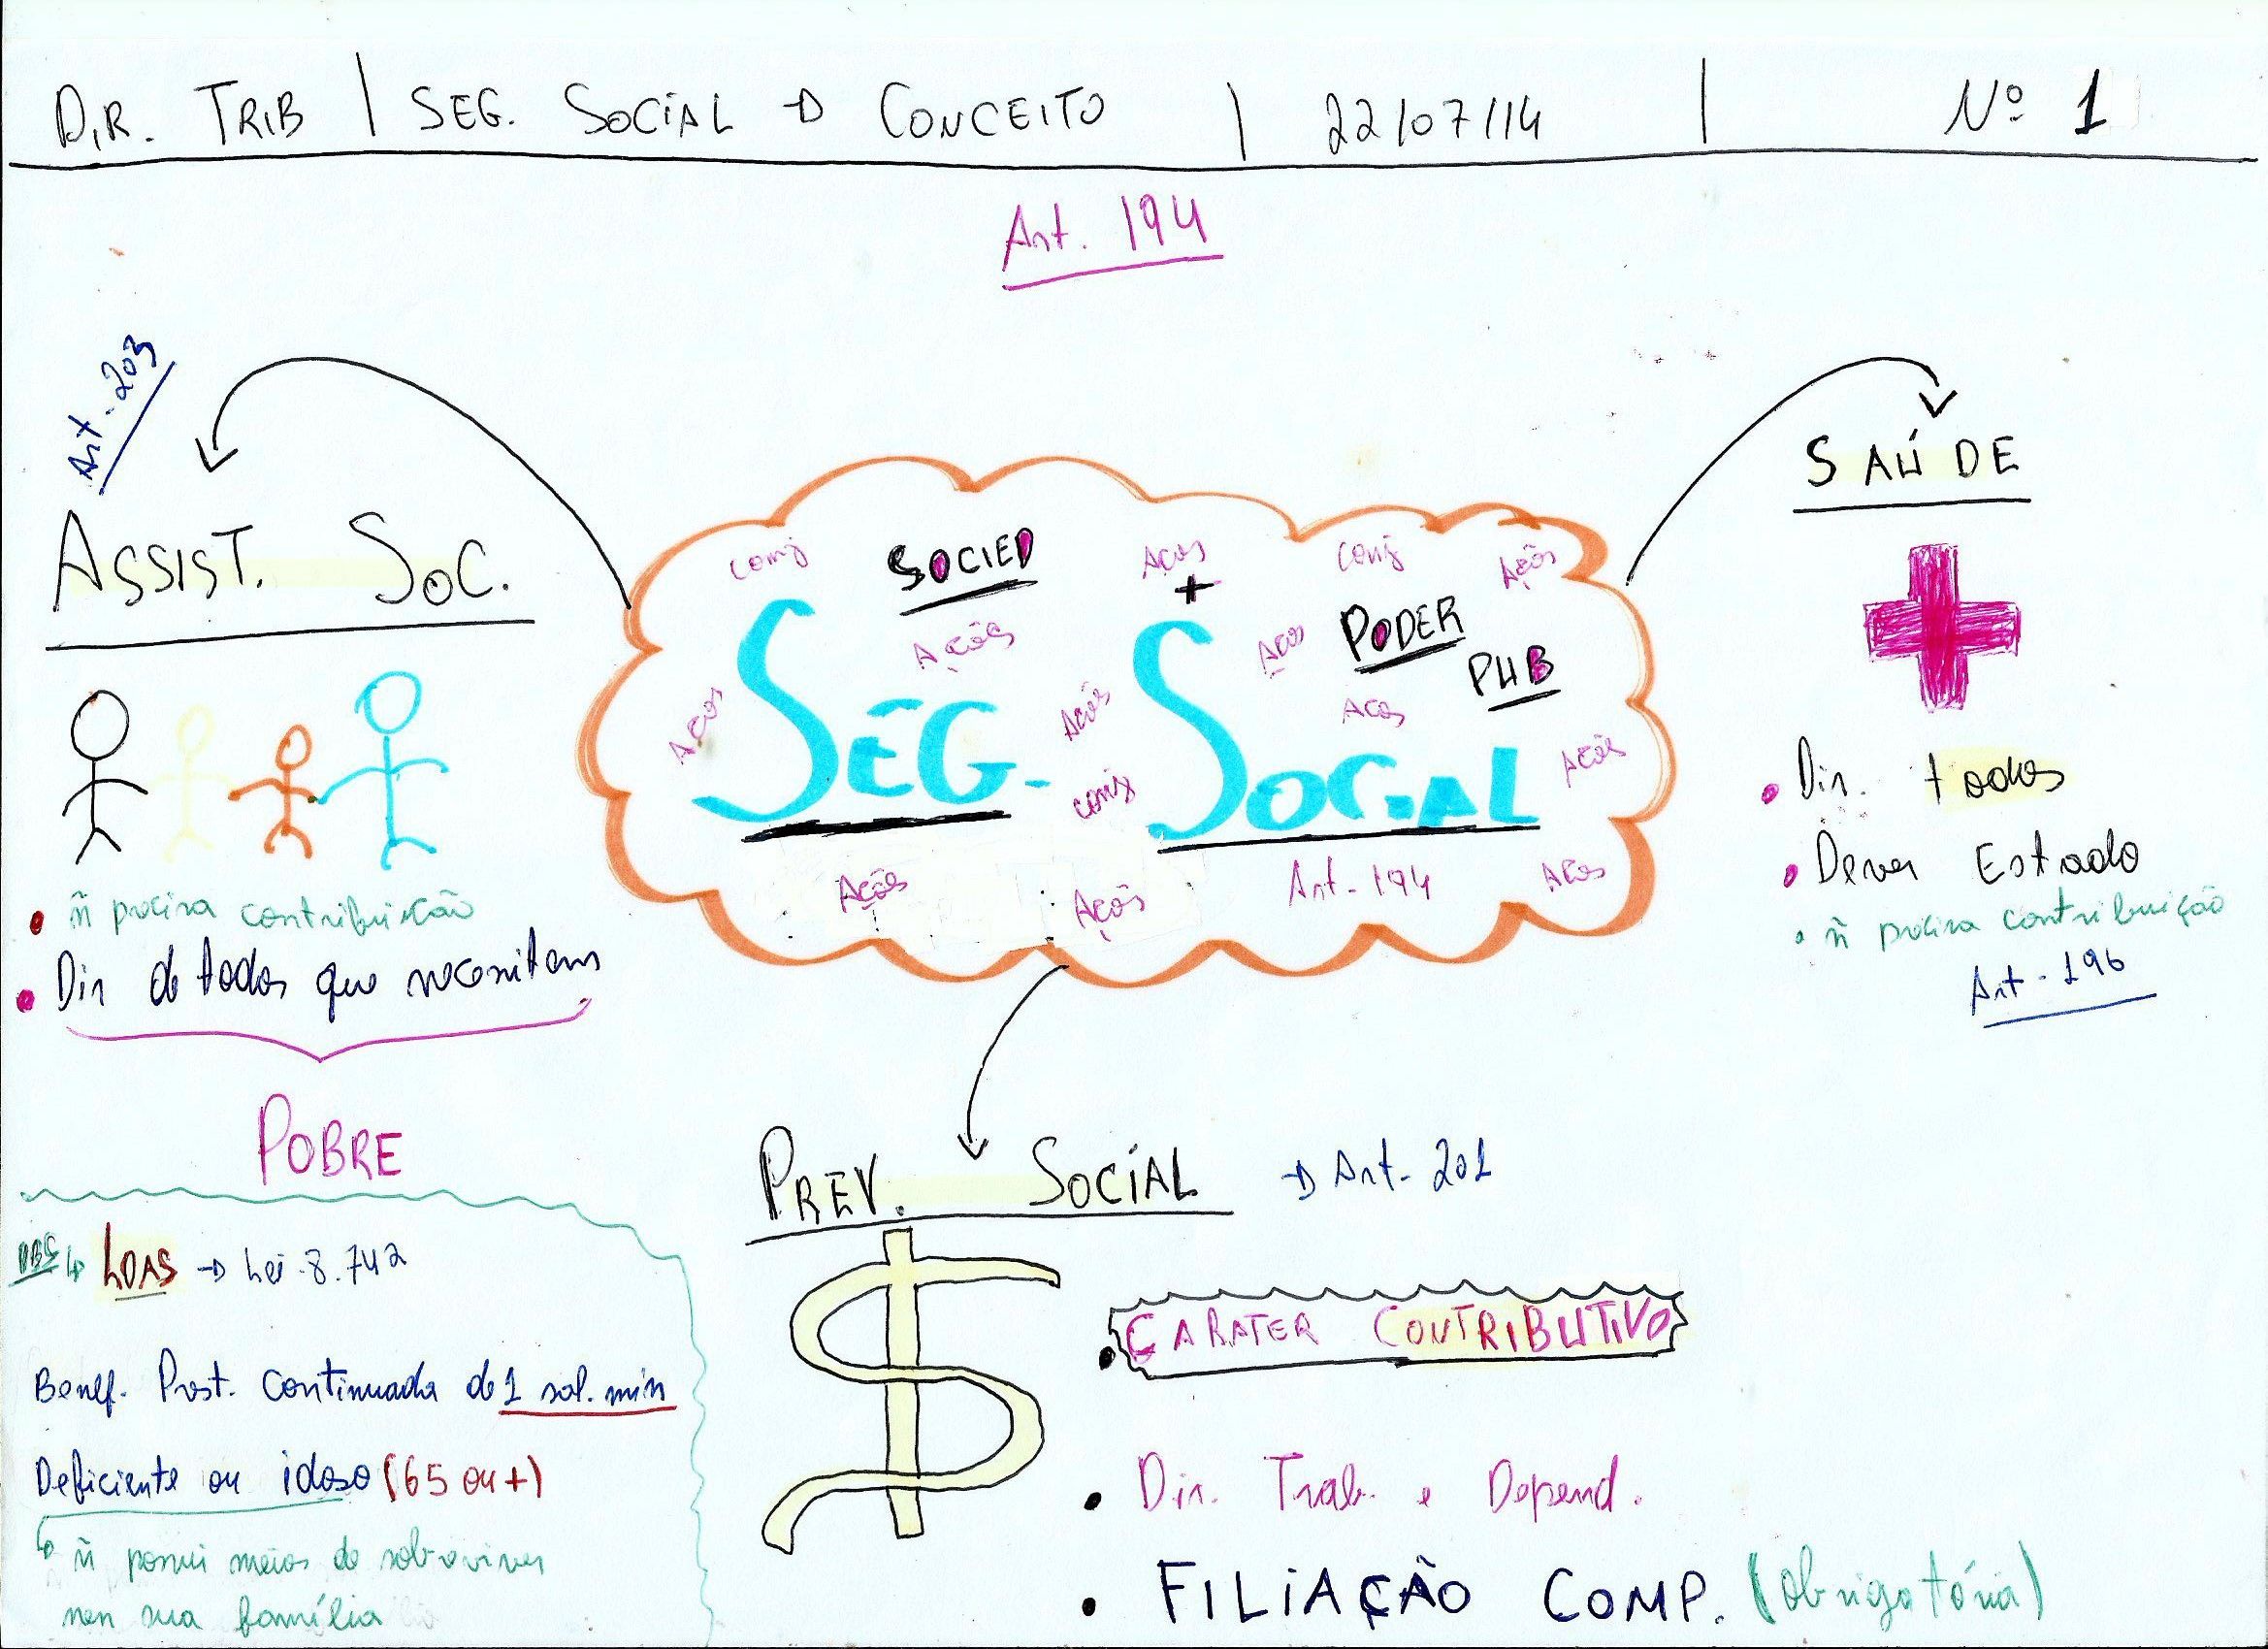 DIR. TRIB | SEG. SOCIAL → CONCEITO | 22/07/14 | Nº 1
Art. 194
Art. 203
ASSIST. SOC.
• ñ precisa contribuição
• Dir de todos que necessitam
POBRE
OBS ↳ LOAS → Lei 8.742
Benef. Prest. Continuada de 1 sal. min
Deficiente ou idoso (65 ou +)
↳ ñ possui meios de sobreviver
nem sua família
conj SOCIED Acos conj Ações
+
Ações Acos PODER
PUB
Acos Ações Acos
SEG. SOCIAL
conj Ações
Ações Ações Art. 194 Acos
SAÚDE
• Dir. todos
• Dever Estado
• ñ precisa contribuição
Art. 196
PREV. SOCIAL → Art. 201
• CARATER CONTRIBUTIVO
• Dir. Trab. e Depend.
• FILIAÇÃO COMP. (obrigatória)